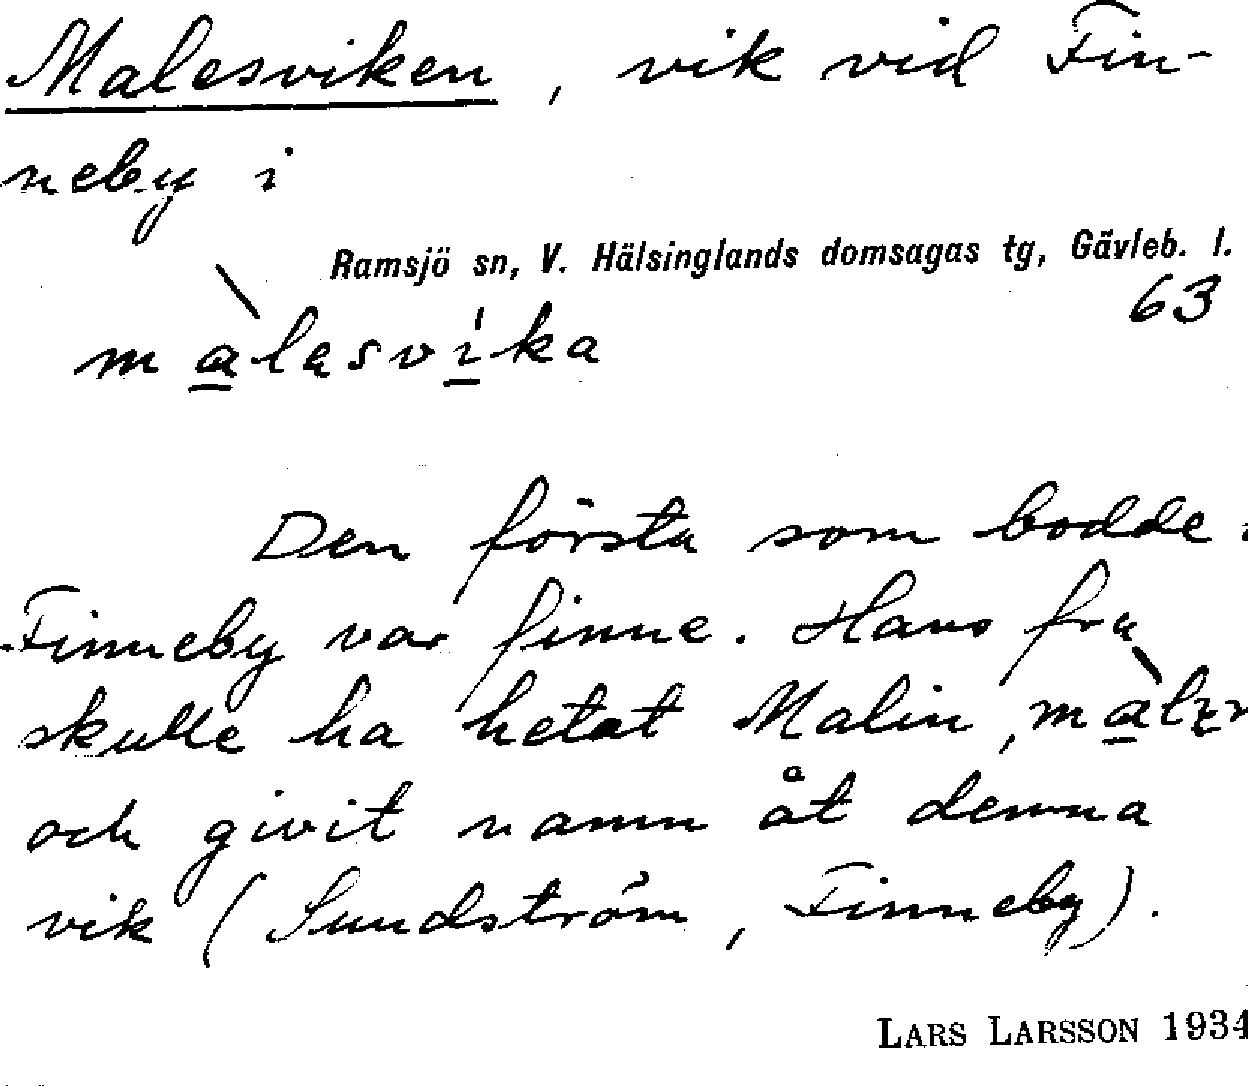 Malesviken, vik vid Fin-
neby i
Ramsjö sn, V. Hälsinglands domsagas tg, Gävleb. l.
63
màlasvíka
Den första som bodde i
Finneby var finne. Hans fru
skulle ha hetat Malin,
och givit namn åt denna
vik (Sundström, Finneby).
LARS LARSSON 1934